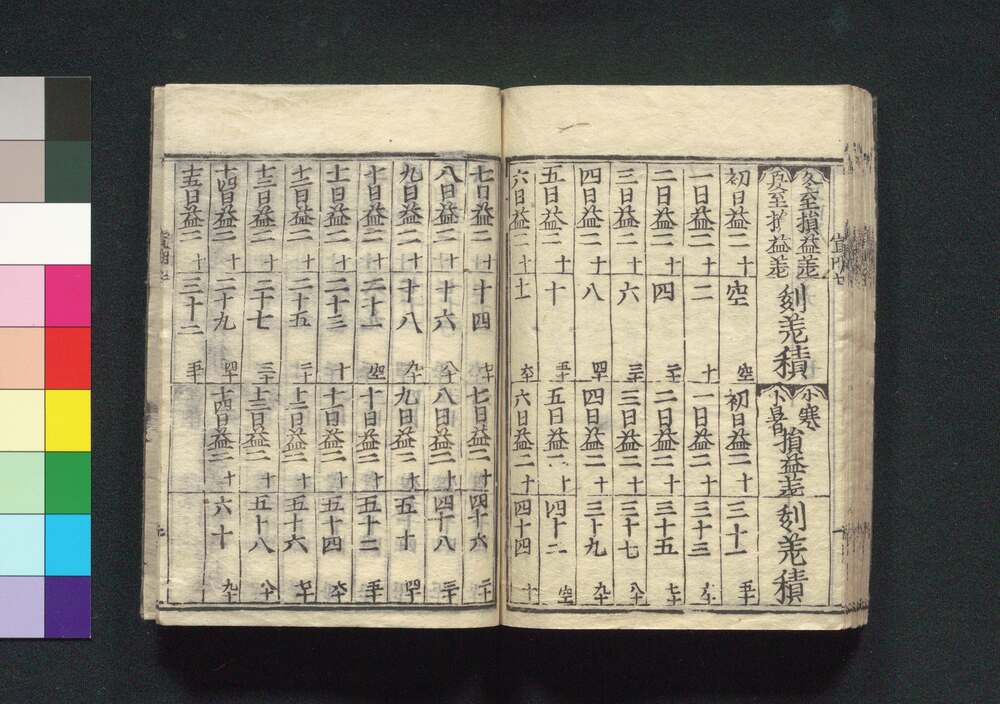 冬至損益差
夏至損益差
刻差積
初日益二十 空 空
一日益二十 二 十
二日益二十 四 二十
三日益二十 六 三十
四日益二十 八 四十
五日益二十 十 五十
六日益二十 十二 六十
小寒
小暑
損益差刻差積
初日益二十 三十一 五十
一日益二十 三十三 六十
二日益二十 三十五 七十
三日益二十 三十七 八十
四日益二十 三十九 九十
五日益二十 四十二 空
六日益二十 四十四 十
七日益二十 十四 七十
八日益二十 十六 八十
九日益二十 十八 九十
十日益二十 二十一 空
十一日益二十 二十三 十
十二日益二十 二十五 二十
十三日益二十 二十七 三十
十四日益二十 二十九 四十
十五日益二十 三十二 五十
七日益二十 四十六 二十
八日益二十 四十八 三十
九日益二十 五十 四十
十日益二十 五十二 五十
十一日益二十 五十四 六十
十二日益二十 五十六 七十
十三日益二十 五十八 八十
十四日益二十 六十 九十